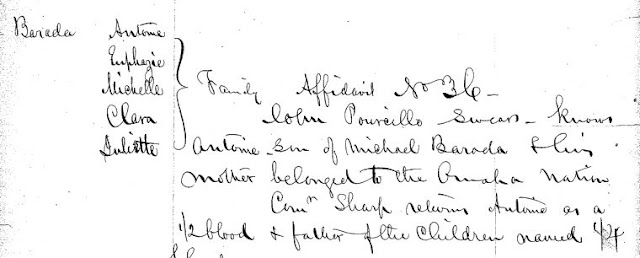 Barada Antoine
Euphazie
Michelle
Clara
Juliette
Family Affidavit No 36 -
John Pourcillo Swears - knows
Antoine son of Michael Barada & his
mother belonged to the Omaha Nation
Comr Sharp returns Antoine as a
1/2 blood & father of the children named 1/4